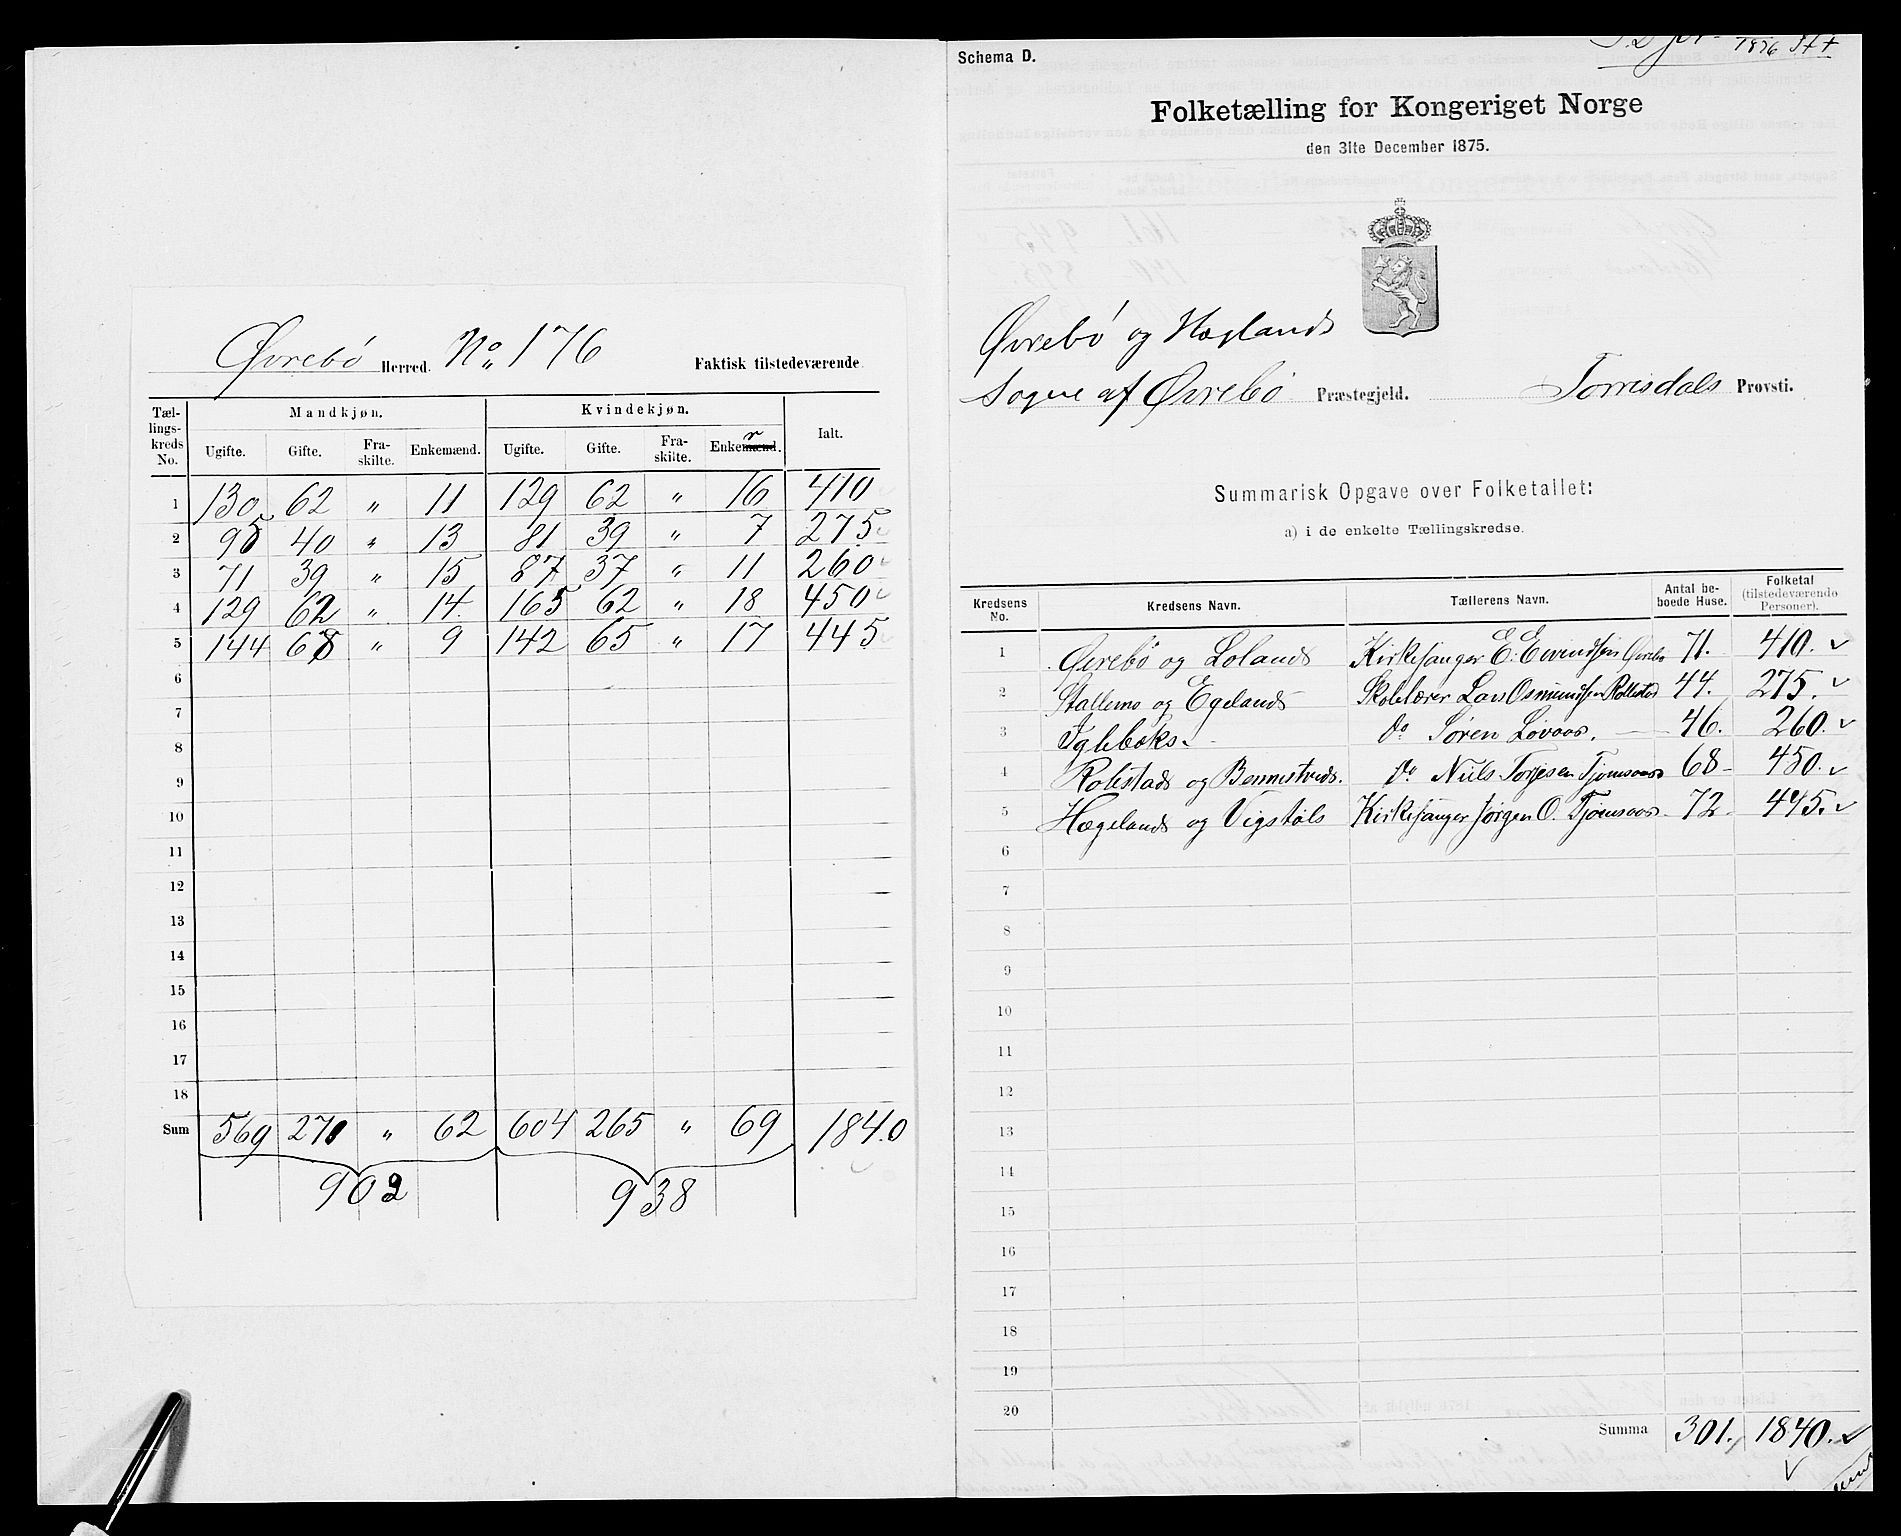 Øvrebø Herred. No. 176 Faktisk tilstedeværende
Tællingskreds No. Mandkjøn. Kvindekjøn. Ialt.
Ugifte. Gifte. Fraskilte. Enkemænd. Ugifte. Gifte. Fraskilte. Enker
1 130 62 " 11 129 62 " 16 410
2 95 40 " 13 81 39 " 7 275
3 71 39 " 15 87 37 " 11 260
4 129 62 " 14 165 62 " 18 450
5 144 68 " 9 142 65 " 17 445
6
7
8
9
10
11
12
13
14
15
16
17
18
Sum 569 271 " 62 604 265 " 69 1840
902 938
Schema D.
1876
Folketælling for Kongeriget Norge
den 31te December 1875.
Øvrebø og Hæglands
Sogne af Øvrebø Præstegjeld. Torrisdals Provsti.
Summarisk Opgave over Folketallet:
a) i de enkelte Tællingskredse.
Kredsens No. Kredsens Navn. Tællerens Navn. Antal beboede Huse. Folketal (tilstedeværende Personer).
1 Øvrebø og Lolands Kirkesanger E. Eivindsen Øvrebø 71. 410.
2 Stallemo og Egelands Skolelærer Lars Osmundsen Rollestad 44. 275.
3 Iglebæks. do Søren Løvaas. 46. 260.
4 Robstads og Bennestveds. do Niils Torjesen Tjomsaas 68 450.
5 Hægelands og Vigstøls Kirkesanger Jørgen O. Tjomsaas 72 445.
6
7
8
9
10
11
12
13
14
15
16
17
18
19
20
Summa 301. 1840.